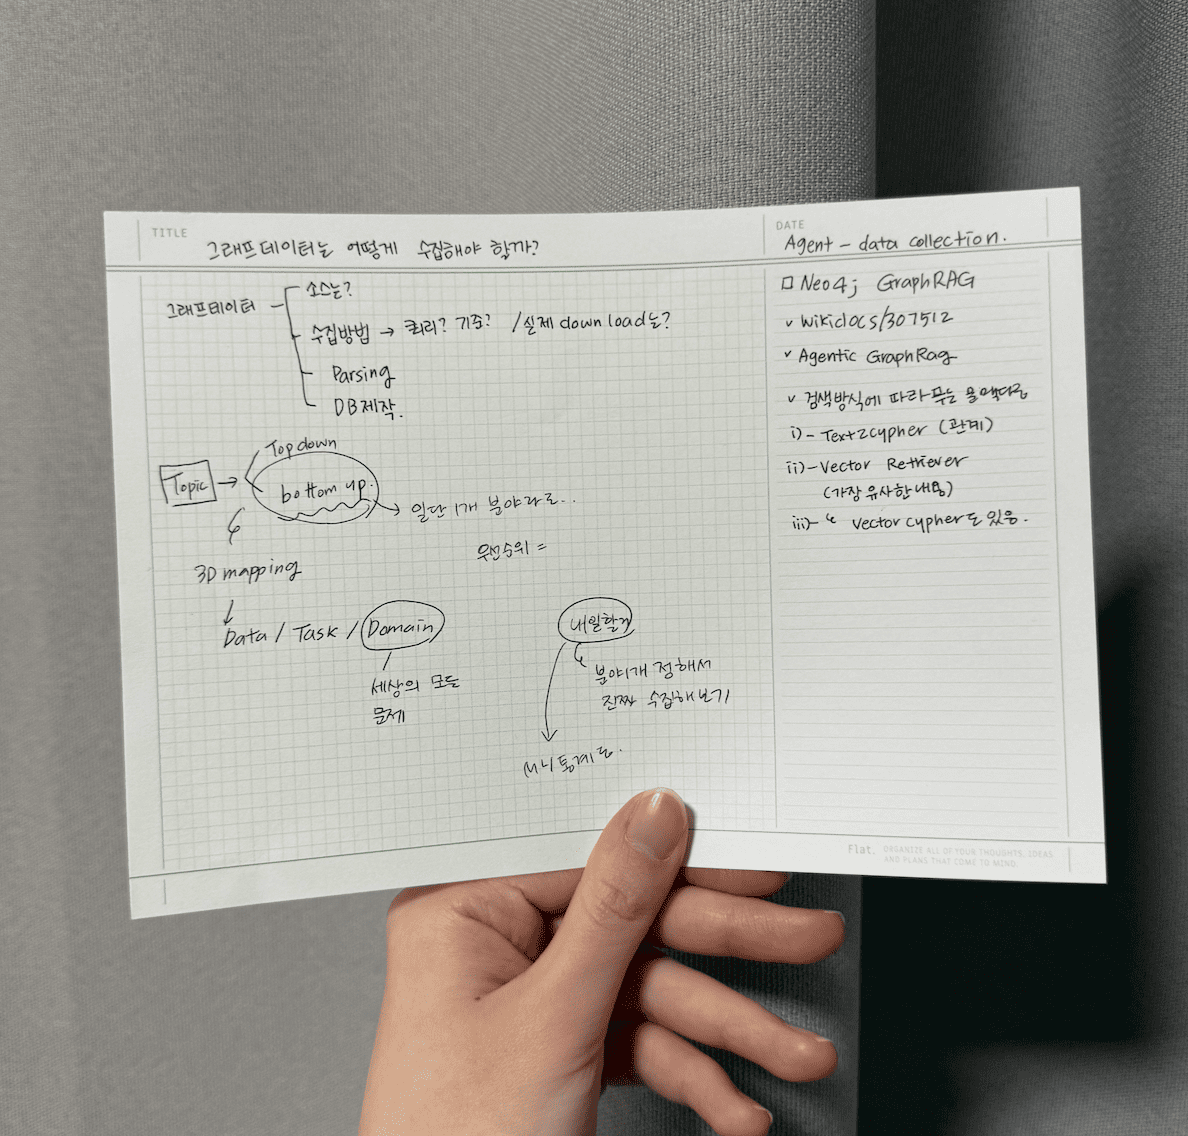 TITLE
그래프데이터는 어떻게 수집해야 할까?
그래프데이터
소스는?
수집방법 → 쿼리? 기준? /실제 download는?
Parsing
DB제작.
Topic →
Top down
bottom up.
→ 일단 1개 분야라도..
우선순위 =
3D mapping
Data / Task / Domain
세상의 모든
문제
내일할거
분야1개 정해서
진짜 수집해보기
DATE
Agent - data collection.
□ Neo4j GraphRAG
v wikidocs/307512
v Agentic GraphRag
v 검색방식에 따라 푸는 문제다름
i) - Text2cypher (관계)
ii) - Vector Retriever
(가장 유사한 내용)
iii) - " vector cypher도 있음.
Flat. ORGANIZE ALL OF YOUR THOUGHTS, IDEAS
AND PLANS THAT COME TO MIND.